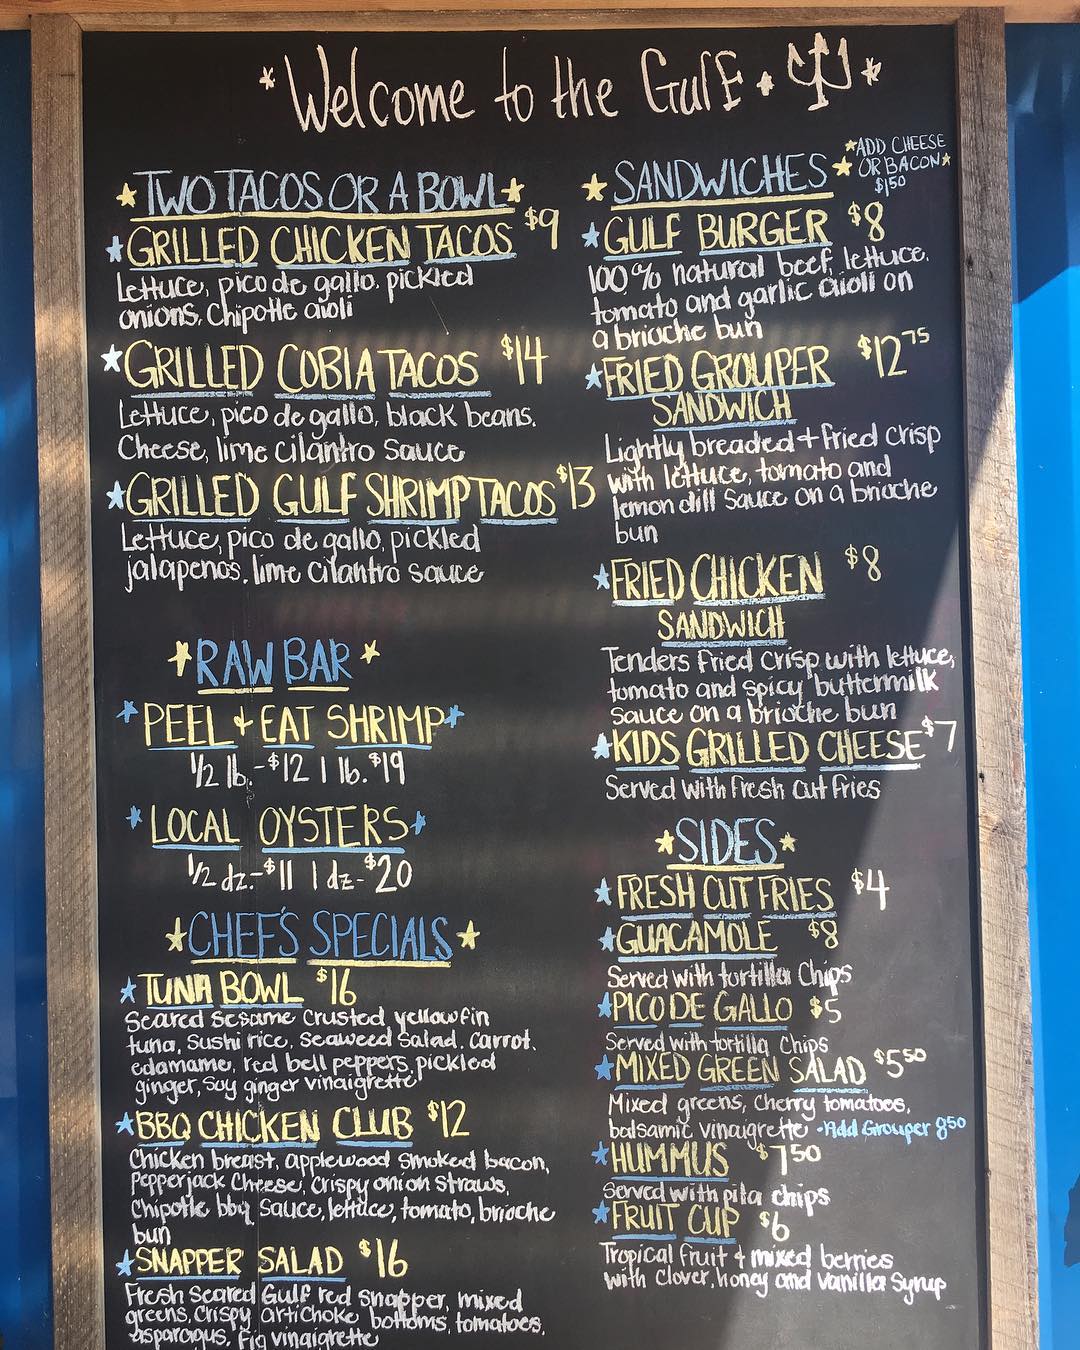 *Welcome to the Gulf*
TWO TACOS OR A BOWL
GRILLED CHICKEN TACOS $9
Lettuce, pico de gallo, pickled
onions, Chipotle aioli
GRILLED COBIA TACOS $14
Lettuce, pico de gallo, black beans.
Cheese, lime cilantro Sauce
GRILLED GULF SHRIMP TACOS $13
Lettuce, pico de gallo, pickled
jalapenos, lime cilantro sauce
RAW BAR
PEEL + EAT SHRIMP
1/2 lb.-$12 1 lb.$19
LOCAL OYSTERS
1/2 dz.-$11 1 dz-$20
CHEF'S SPECIALS
TUNA BOWL $16
Seared Sesame Crusted yellowfin
tuna, Sushi rice, Seaweed Salad, Carrot,
edamame, red bell peppers, pickled
ginger, Soy ginger vinaigrette
BBQ CHICKEN CLUB $12
Chicken breast, applewood Smoked bacon,
Pepperjack Cheese, Crispy onion Straws,
Chipotle bbq Sauce, lettuce, tomato, brioche
bun
SNAPPER SALAD $16
Fresh Seared Gulf red snapper, mixed
greens, Crispy artichoke bottoms, tomatoes,
asparagus, Fig vinaigrette
SANDWICHES
*ADD CHEESE
OR BACON*
$1.50
GULF BURGER $8
100% natural beef, lettuce,
tomato and garlic aioli on
a brioche bun
FRIED GROUPER $12.75
SANDWICH
Lightly breaded + fried crisp
with lettuce, tomato and
lemon dill Sauce on a brioche
bun
FRIED CHICKEN $8
SANDWICH
Tenders Fried Crisp with lettuce,
tomato and spicy buttermilk
sauce on a brioche bun
KIDS GRILLED CHEESE $7
Served with Fresh Cut Fries
SIDES
FRESH CUT FRIES $4
GUACAMOLE $8
Served with tortilla Chips
PICO DE GALLO $5
Served with tortilla Chips
MIXED GREEN SALAD $5.50
Mixed greens, Cherry tomatoes,
balsamic vinaigrette -Add Grouper 8.50
HUMMUS $7.50
Served with pita chips
FRUIT CUP $6
Tropical Fruit + mixed berries
with clover, honey and vanilla Syrup